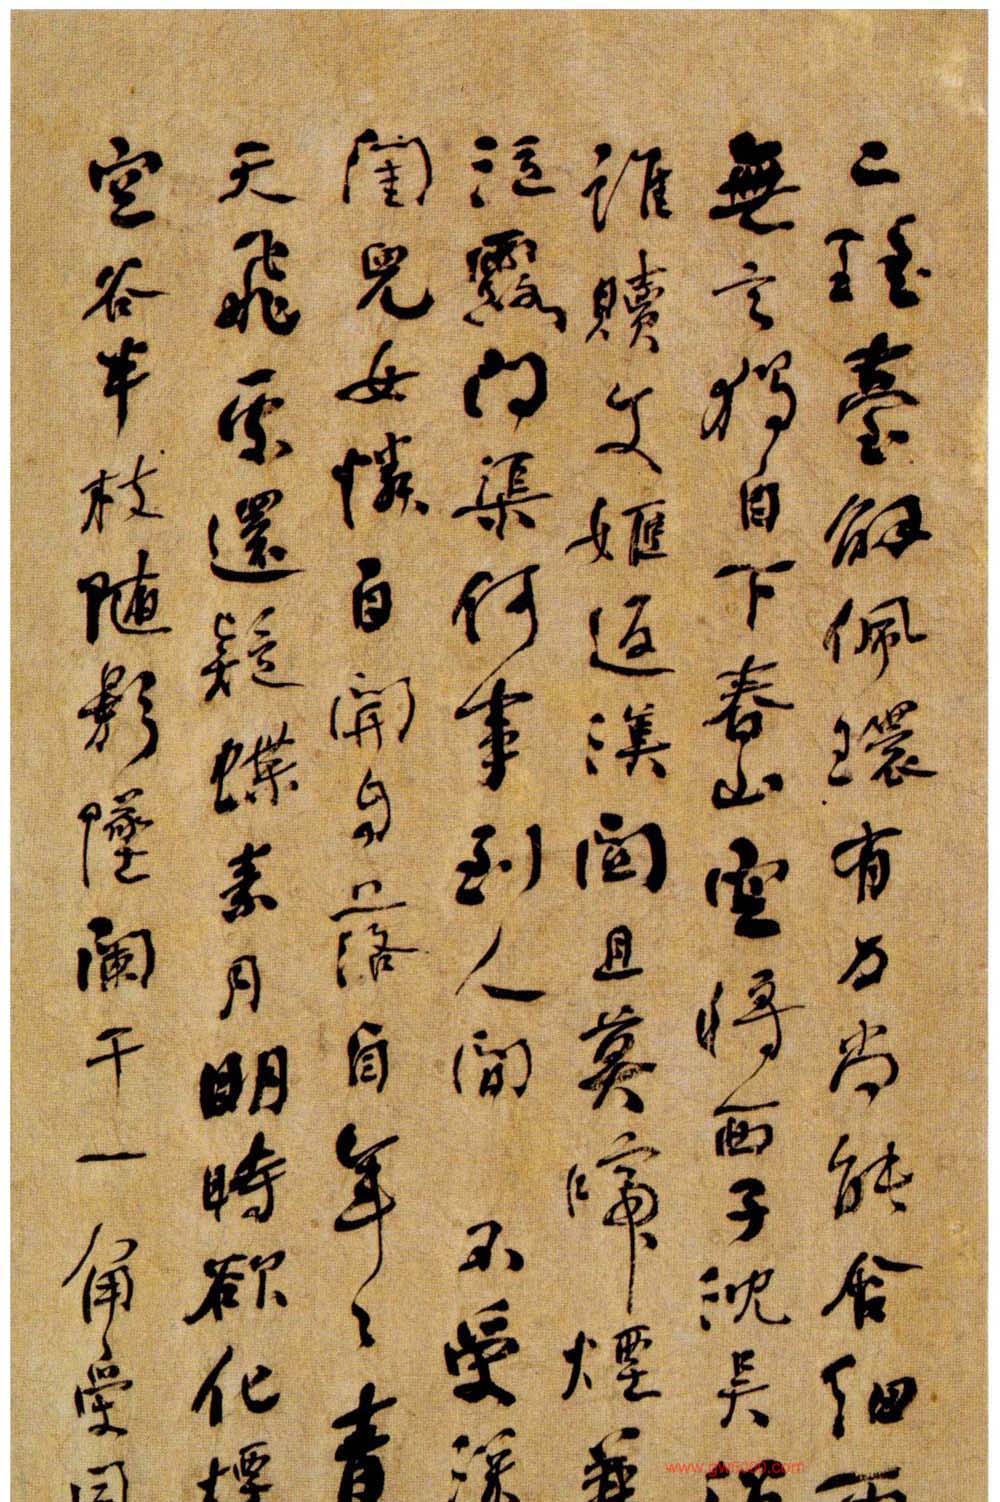 瑤臺解佩環有力尚能含細雨
無言獨自下春山空將西子沈吳
誰贖文姬返漢關且莫啼煙兼
泣露問渠何事到人間 不受深
閨兒女憐自開自落自年々青
天飛處還疑蝶素月明時欲化煙
空谷半枝隨影墜闌干一角受風